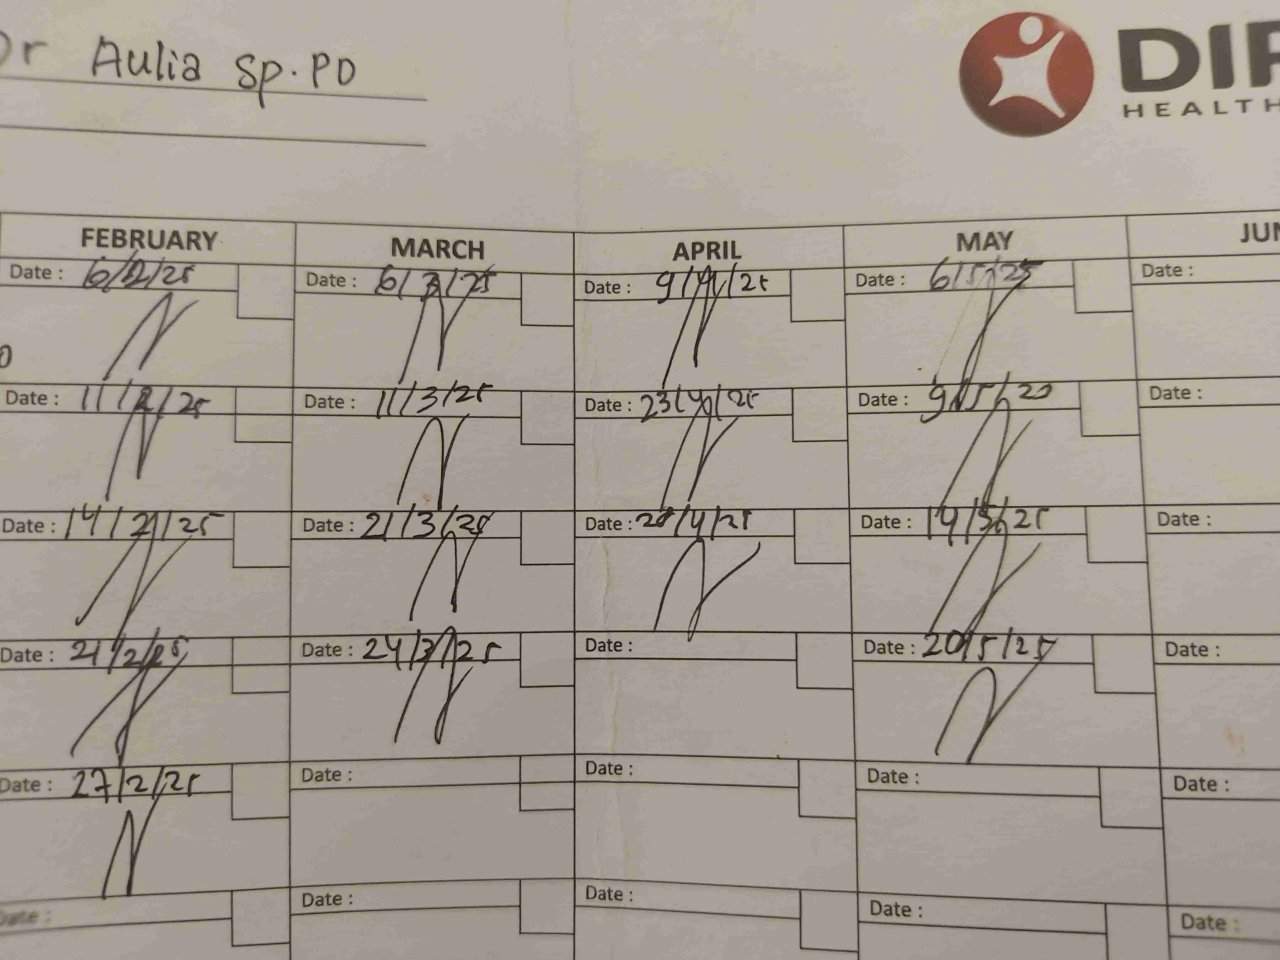 Dr Aulia Sp.PD
DIP
HEALTH
FEBRUARY MARCH APRIL MAY JUN
Date : 6/2/25 Date : 6/3/25 Date : 9/4/25 Date : 6/5/25 Date :
Date : 11/2/25 Date : 11/3/25 Date : 23/4/25 Date : 9/5/20 Date :
Date : 14/2/25 Date : 21/3/25 Date : 28/4/25 Date : 14/5/25 Date :
Date : 21/2/25 Date : 24/3/25 Date : Date : 20/5/25 Date :
Date : 27/2/25 Date : Date : Date : Date :
Date : Date : Date : Date : Date :